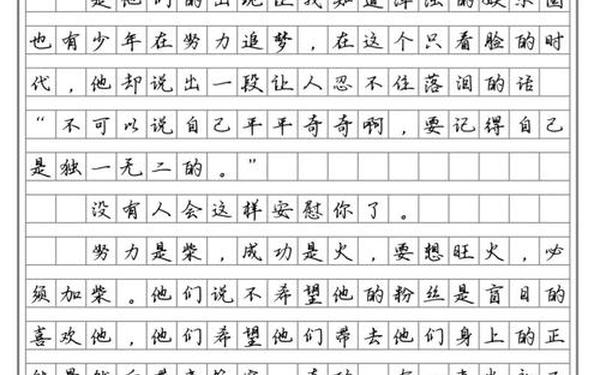 是他们的出现让我知道浑浊的娱乐圈
也有少年在努力追梦，在这个只看脸的时
代，他却说出一段让人忍不住落泪的话
“不可以说自己平平奇奇啊，要记得自己
是独一无二的。”
没有人会这样安慰你了。
努力是柴，成功是火，要想旺火，必
须加柴。他们说不希望他的粉丝是盲目的
喜欢他，他们希望他们带去他们身上的正